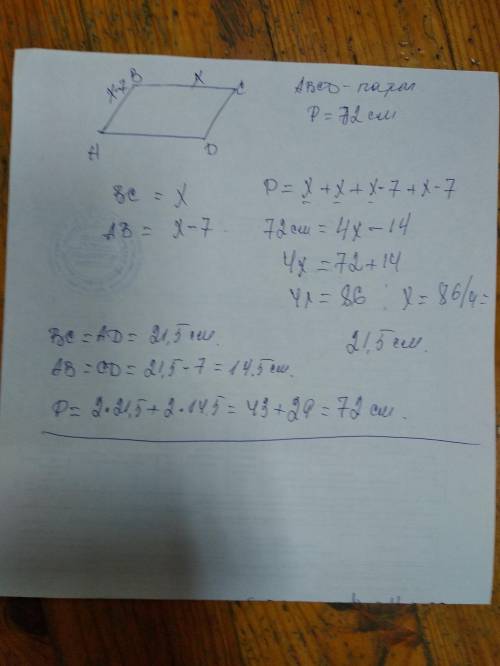 B X C
X-7
A D
ABCD - парал
P = 72 см
BC = X
AB = X-7
P = X + X + X-7 + X-7
72 см = 4X - 14
4X = 72 + 14
4X = 86 X = 86/4 =
21,5 см.
BC = AD = 21,5 см.
AB = CD = 21,5 - 7 = 14,5 см.
P = 2·21,5 + 2·14,5 = 43 + 29 = 72 см.